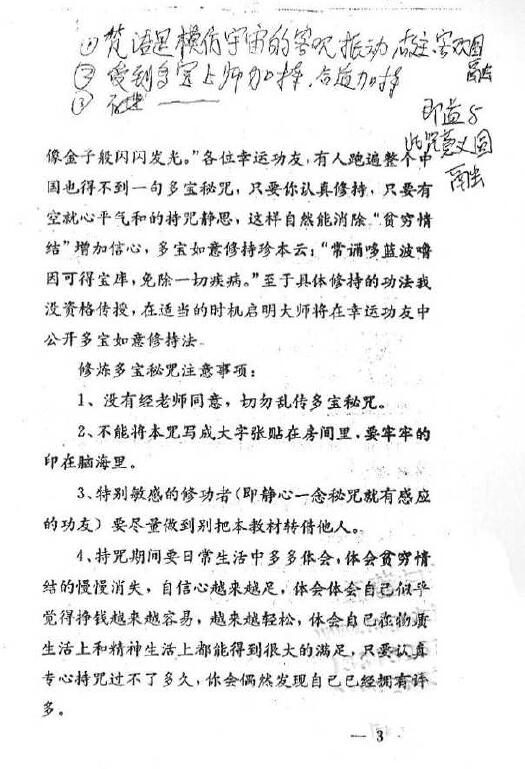 ① 梵语是模仿宇宙的客观振动
② 受到多宝上师加持，合道加持
③
即益与
此咒意义图
像金子般闪闪发光。”各位幸运功友，有人跑遍整个中
国也得不到一句多宝秘咒，只要你认真修持，只要有
空就心平气和的持咒静思，这样自然能消除“贫穷情
结”增加信心，多宝如意修持珍本云：“常诵哆蓝波噜
因可得宝库，免除一切疾病。”至于具体修持的功法我
没资格传授，在适当的时机启明大师将在幸运功友中
公开多宝如意修持法。
修炼多宝秘咒注意事项：
1、没有经老师同意，切勿乱传多宝秘咒。
2、不能将本咒写成大字张贴在房间里，要牢牢的
印在脑海里。
3、特别敏感的修功者（即静心一念秘咒就有感应
的功友）要尽量做到别把本教材转借他人。
4、持咒期间要日常生活中多多体会，体会贫穷情
结的慢慢消失，自信心越来越足，体会体会自己似乎
觉得挣钱越来越容易，越来越轻松，体会自己在物质
生活上和精神生活上都能得到很大的满足，只要认真
专心持咒过不了多久，你会偶然发现自己已经拥有许
多。
— 3